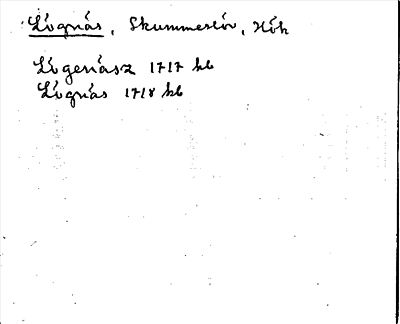 Lögnäs, Skummeslöv, Hök
Lögenäsz 1717 kb
Lögnäs 1718 kb